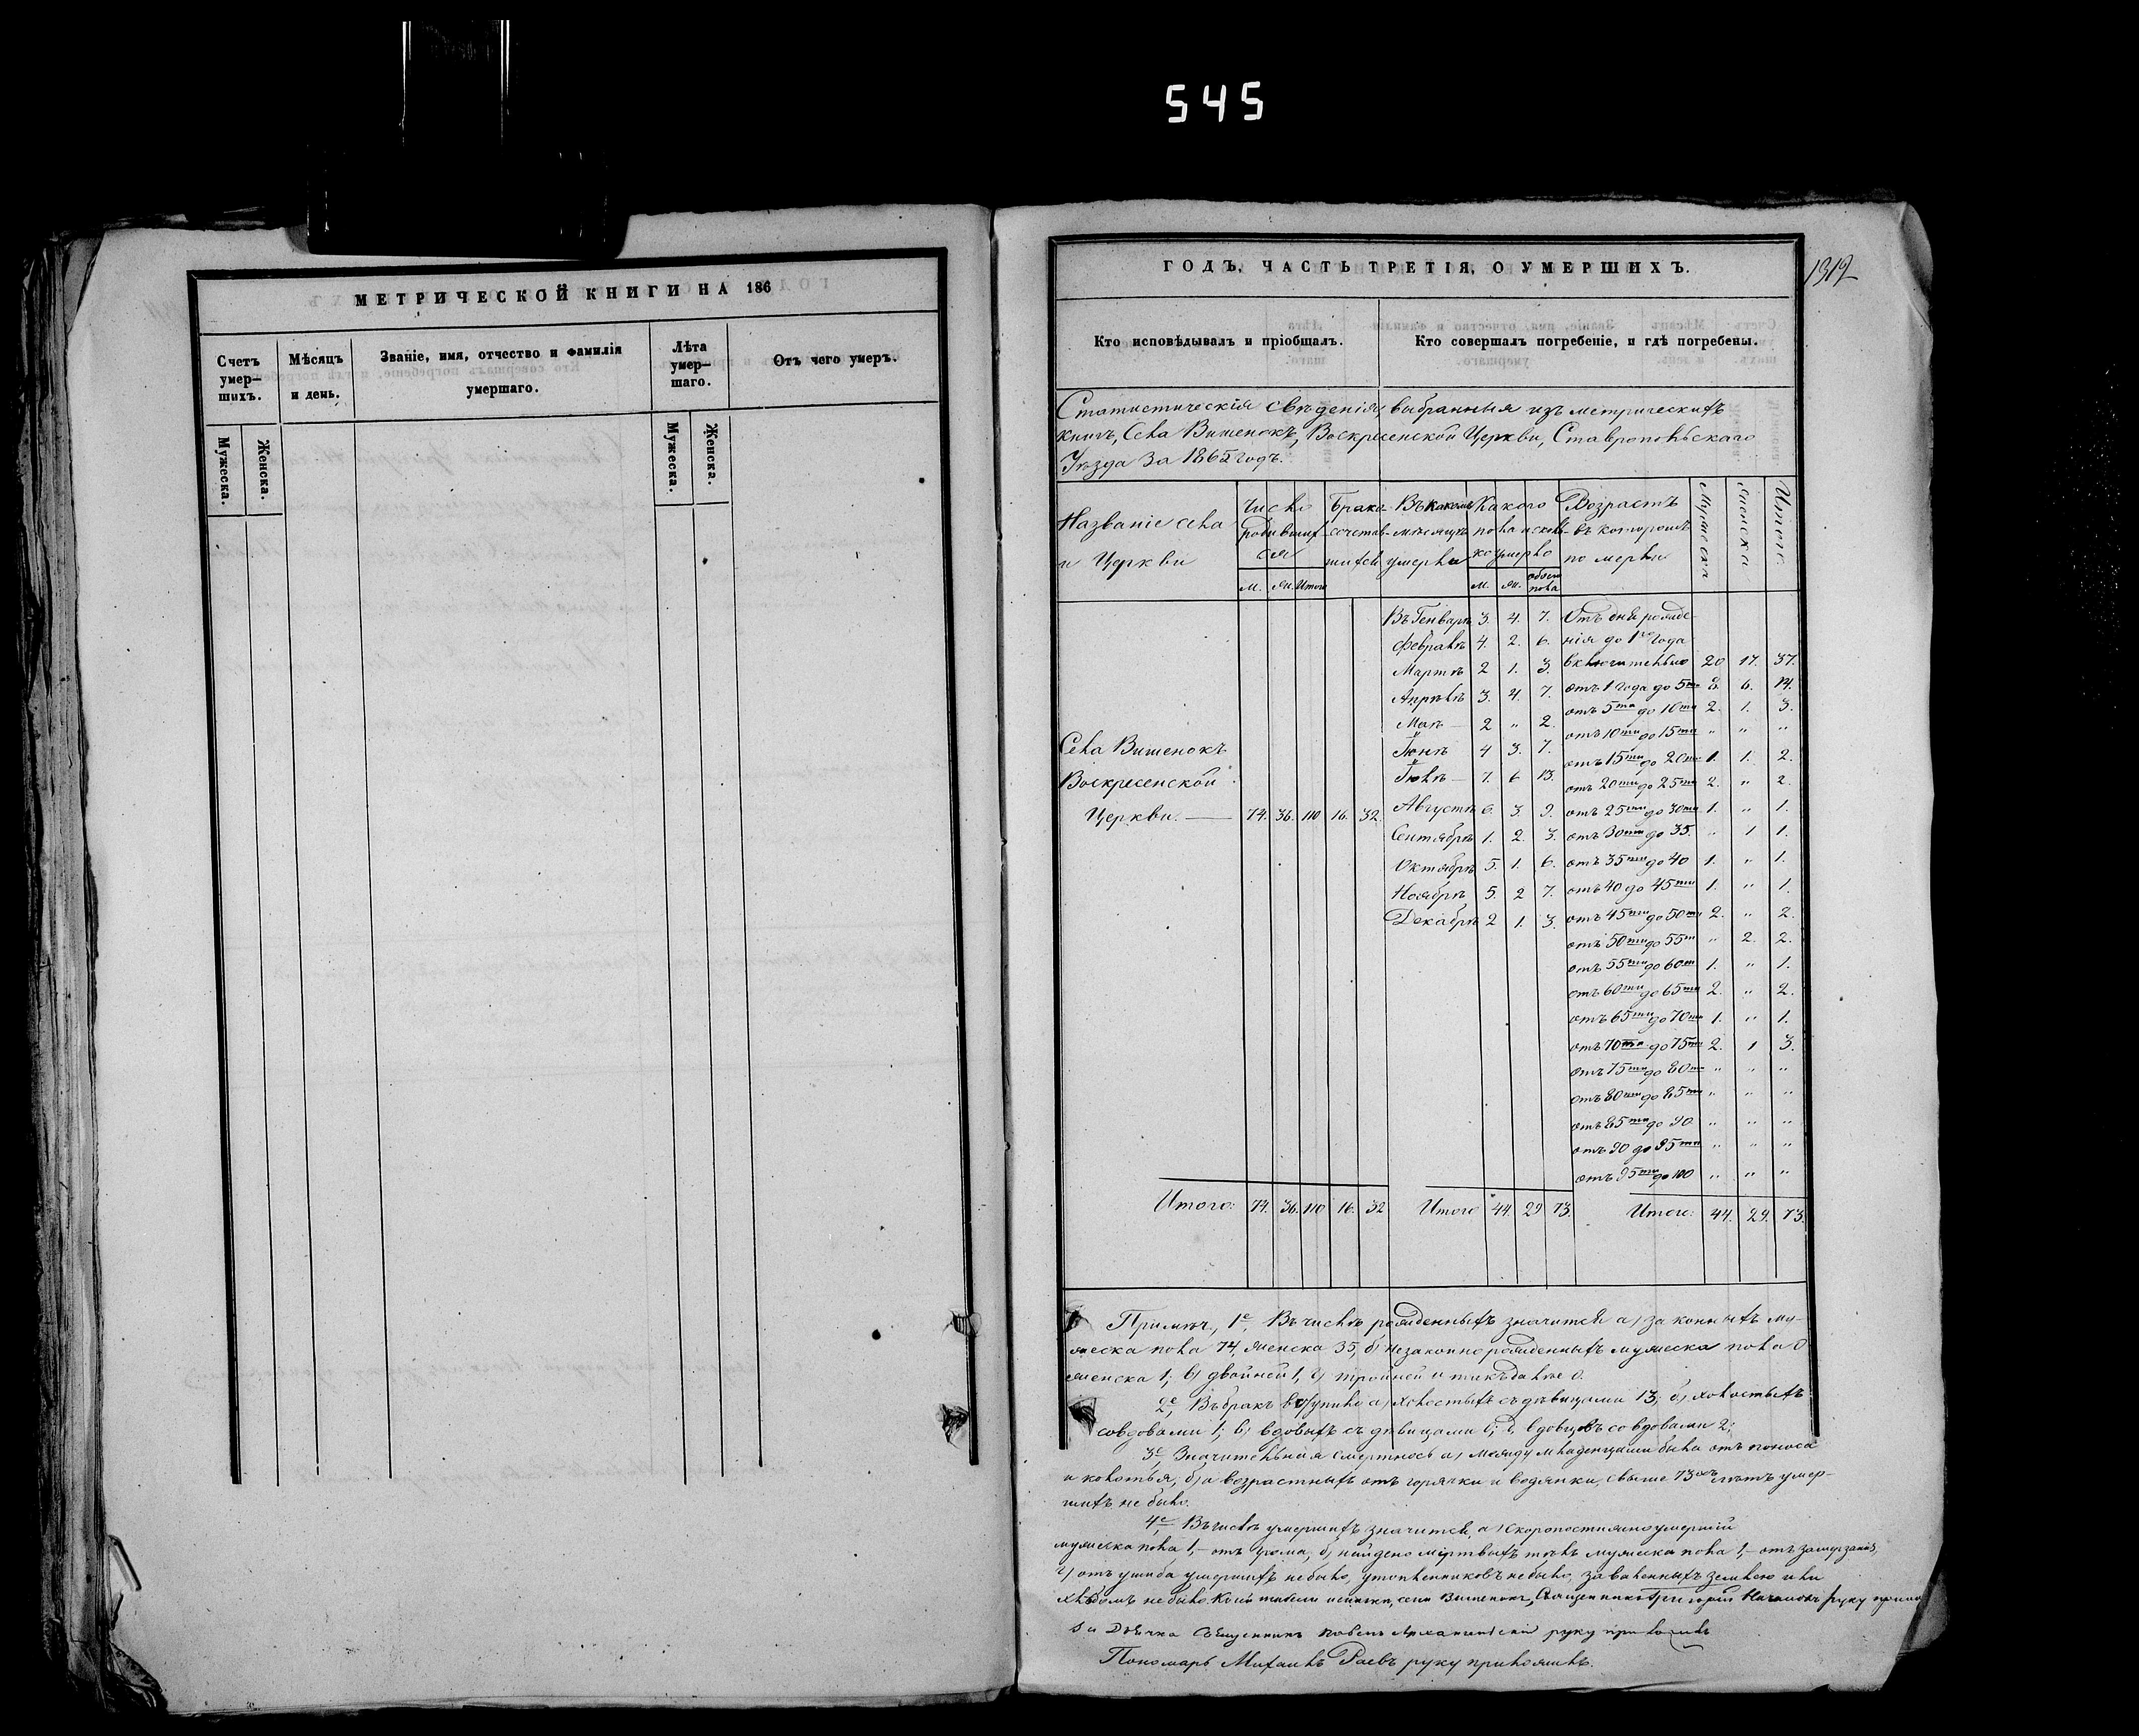 545
МЕТРИЧЕСКОЙ КНИГИ НА 186
Счетъ умер—шихъ.
Мѣсяцъ и день.
Званіе, имя, отчество и фамилія умершаго.
Лѣта умер—шаго.
Отъ чего умеръ.
Мужеска.
Женска.
Мужеска.
Женска.
ГОДЪ, ЧАСТЬ ТРЕТІЯ, О УМЕРШИХЪ.
1312
Кто исповѣдывалъ и пріобщалъ.
Кто совершалъ погребеніе, и гдѣ погребены.
Статистическія свѣденія, выбранныя изъ метрическихъ
книгъ, Села Вишенокъ, Воскресенской Церкви, Ставропольскаго
Уѣзда за 1865 годъ.
Названіе села и Церкви
Число родившихся
м. ж. Итого
Брако-сочетав-шихся
Въ какомъ мѣсяцѣ умерли
Какого пола и сколь-ко умерло
м. ж. обоего пола
Возрастъ въ которомъ померли
Мужеска
Женска
Итого.
Въ Генварѣ 3. 4. 7. Отъ дня рожде-
Февралѣ 4. 2. 6. нія до 1го года
Мартѣ 2 1. 3. включительно 20 17. 37.
Апрѣлѣ 3. 4. 7. отъ 1 года до 5ти 8. 6. 14.
Маѣ 2 " 2. отъ 5ти до 10ти 2. 1. 3.
отъ 10ти до 15ти " " "
Села Вишенокъ Іюнѣ 4 3. 7. отъ 15ти до 20ти 1. 1. 2.
Воскресенской Іюлѣ 7. 6 13. отъ 20ти до 25ти 2. " 2.
Церкви. 74. 36. 110 16. 32 Августѣ 6. 3. 9. отъ 25ти до 30ти 1. " 1.
Сентябрѣ 1. 2. 3. отъ 30ти до 35. " 1 1.
Октябрѣ 5. 1. 6. отъ 35ти до 40 1. " 1.
Ноябрѣ 5. 2 7. отъ 40 до 45ти 1. " 1.
Декабрѣ 2 1. 3. отъ 45ти до 50ти 2. " 2.
отъ 50ти до 55ти " 2. 2.
отъ 55ти до 60ти 1. " 1.
отъ 60ти до 65ти 2. " 2.
отъ 65ти до 70ти 1. " 1.
отъ 70ти до 75ти 2. 1 3.
отъ 75ти до 80ти " " "
отъ 80ти до 85ти " " "
отъ 85ти до 90. " " "
отъ 90 до 95ти " " "
отъ 95ти до 100 " " "
Итого: 74. 36. 110 16. 32 Итого 44. 29 73. Итого: 44. 29. 73.
Примѣч., 1е, Въ числѣ рожденныхъ значится а) законныхъ му-
жеска пола 74, женска 35, б) незаконнорожденныхъ мужеска пола 0
женска 1; в) двойней 1, г) тройней и такъ далѣе 0.
2е, Въ бракъ вступило а) холостыхъ съ дѣвицами 13; б) холостыхъ
совдовами 1; в) вдовыхъ съ дѣвицами вдовцовъ со вдовами 2;
3е, Значительная смертность а) между младенцами была отъ поноса
и колотья, б) а возрастныхъ отъ горячки и водянки, свыше 73хъ лѣтъ умер-
шихъ не было.
4е, Въ числѣ умершихъ значится, а) скоропостижно умершій
мужеска пола 1,— отъ грома, б) найдено мертвыхъ тѣлъ мужеска пола 1,— отъ замерзанія,
г) отъ ушиба умершихъ не было, утопленниковъ не было, заваленныхъ землею или
хлѣбомъ не было. села Вишенокъ, Священникъ Григорій руку
Священникъ Павелъ Архангельскій руку приложилъ
Пономарь Михаилъ Раевъ руку приложилъ.